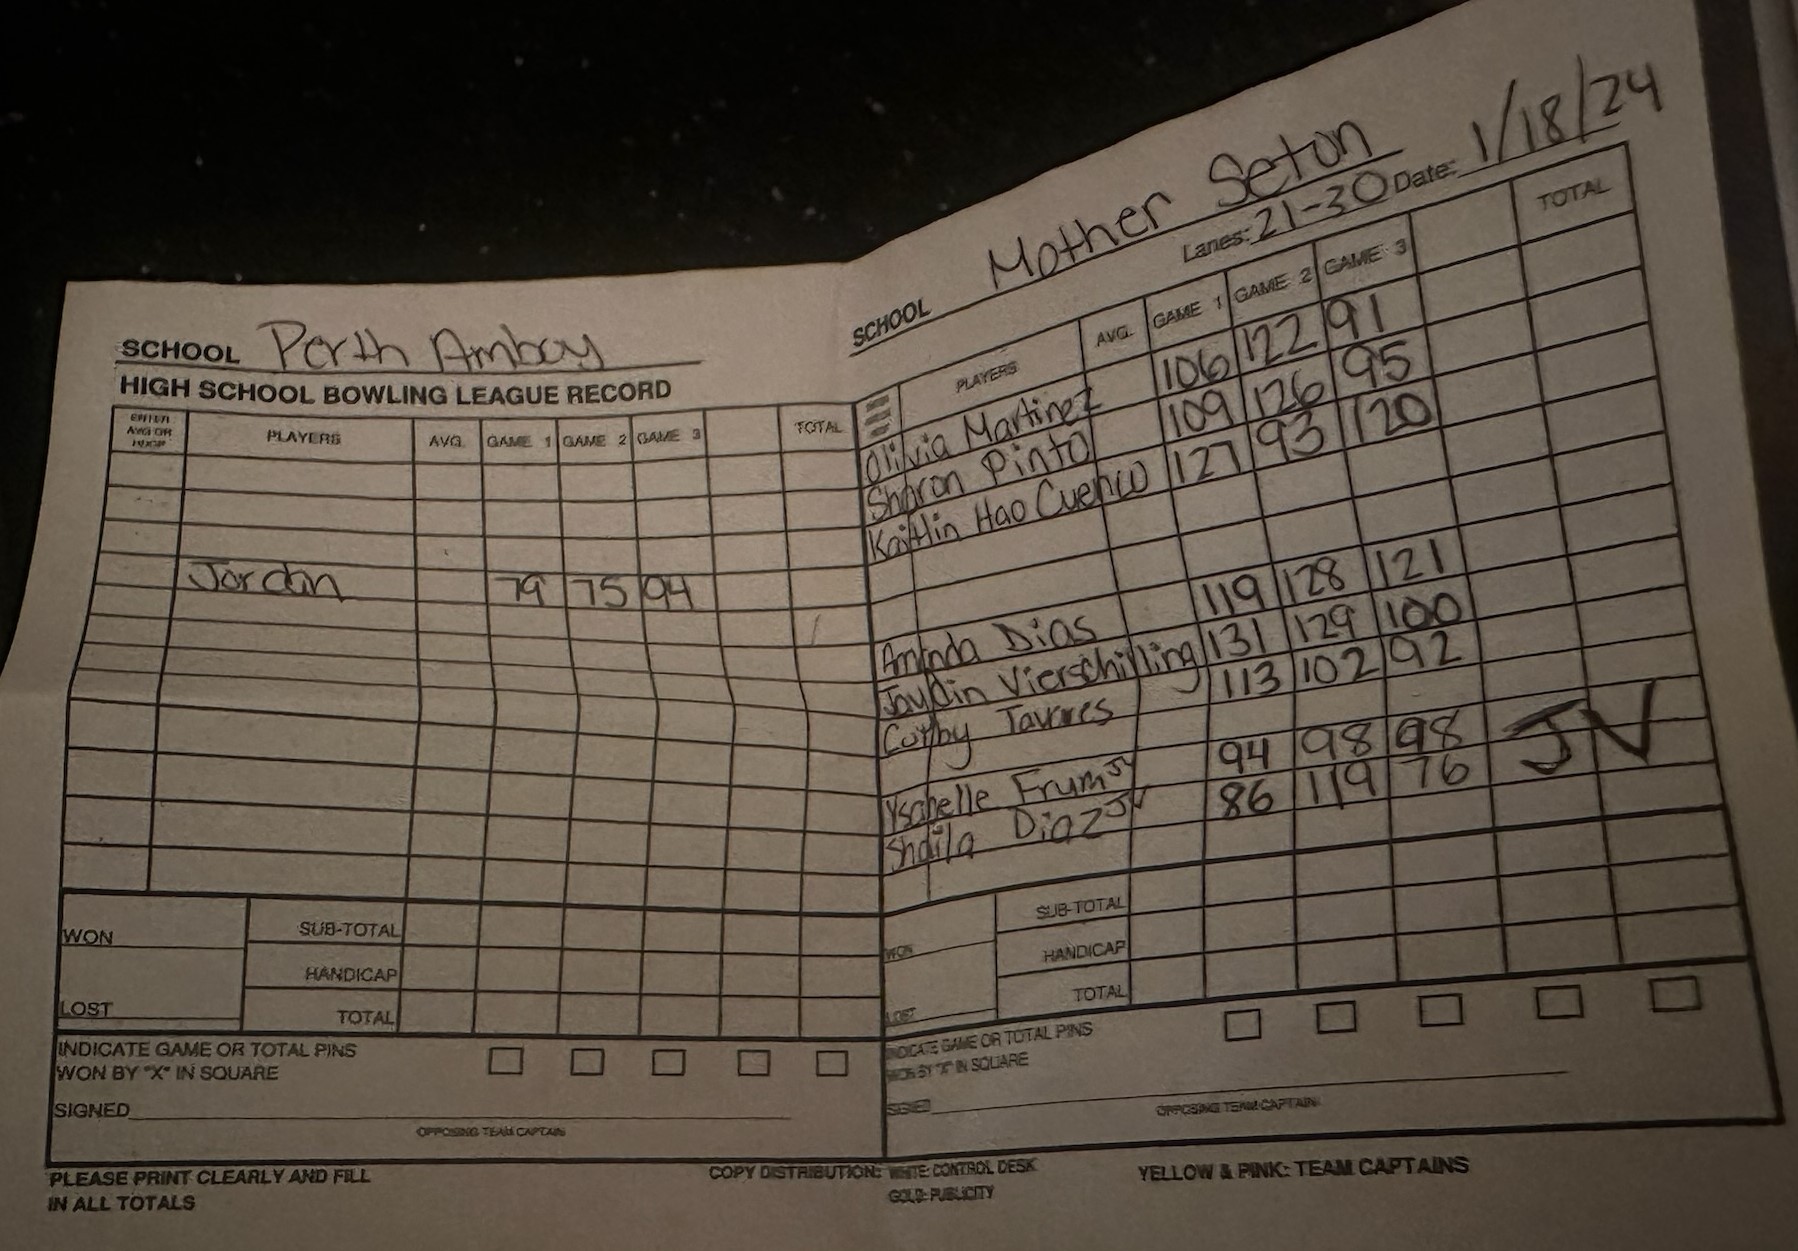 SCHOOL Perth Amboy
HIGH SCHOOL BOWLING LEAGUE RECORD
ENTER AVG OR HDCP PLAYERS AVG. GAME 1 GAME 2 GAME 3 TOTAL
Jordan 79 75 94
WON
LOST
SUB-TOTAL
HANDICAP
TOTAL
INDICATE GAME OR TOTAL PINS
WON BY "X" IN SQUARE
SIGNED
OPPOSING TEAM CAPTAIN
SCHOOL Mother Seton
Lanes: 21-30 Date: 1/18/24
PLAYERS AVG. GAME 1 GAME 2 GAME 3 TOTAL
Olivia Martinez 106 122 91
Sharon Pinto 109 126 95
Kaitlin Hao Cuenco 127 93 120
Amanda Dias 119 128 121
Jaydin Vierschilling 131 129 100
Cathy Tavares 113 102 92
Ysabelle Frum JV 94 98 98 JV
Shaila Diaz JV 86 119 76
WON
LOST
SUB-TOTAL
HANDICAP
TOTAL
INDICATE GAME OR TOTAL PINS
WON BY "X" IN SQUARE
SIGNED
OPPOSING TEAM CAPTAIN
PLEASE PRINT CLEARLY AND FILL
IN ALL TOTALS
COPY DISTRIBUTION: WHITE: CONTROL DESK
GOLD: PUBLICITY
YELLOW & PINK: TEAM CAPTAINS